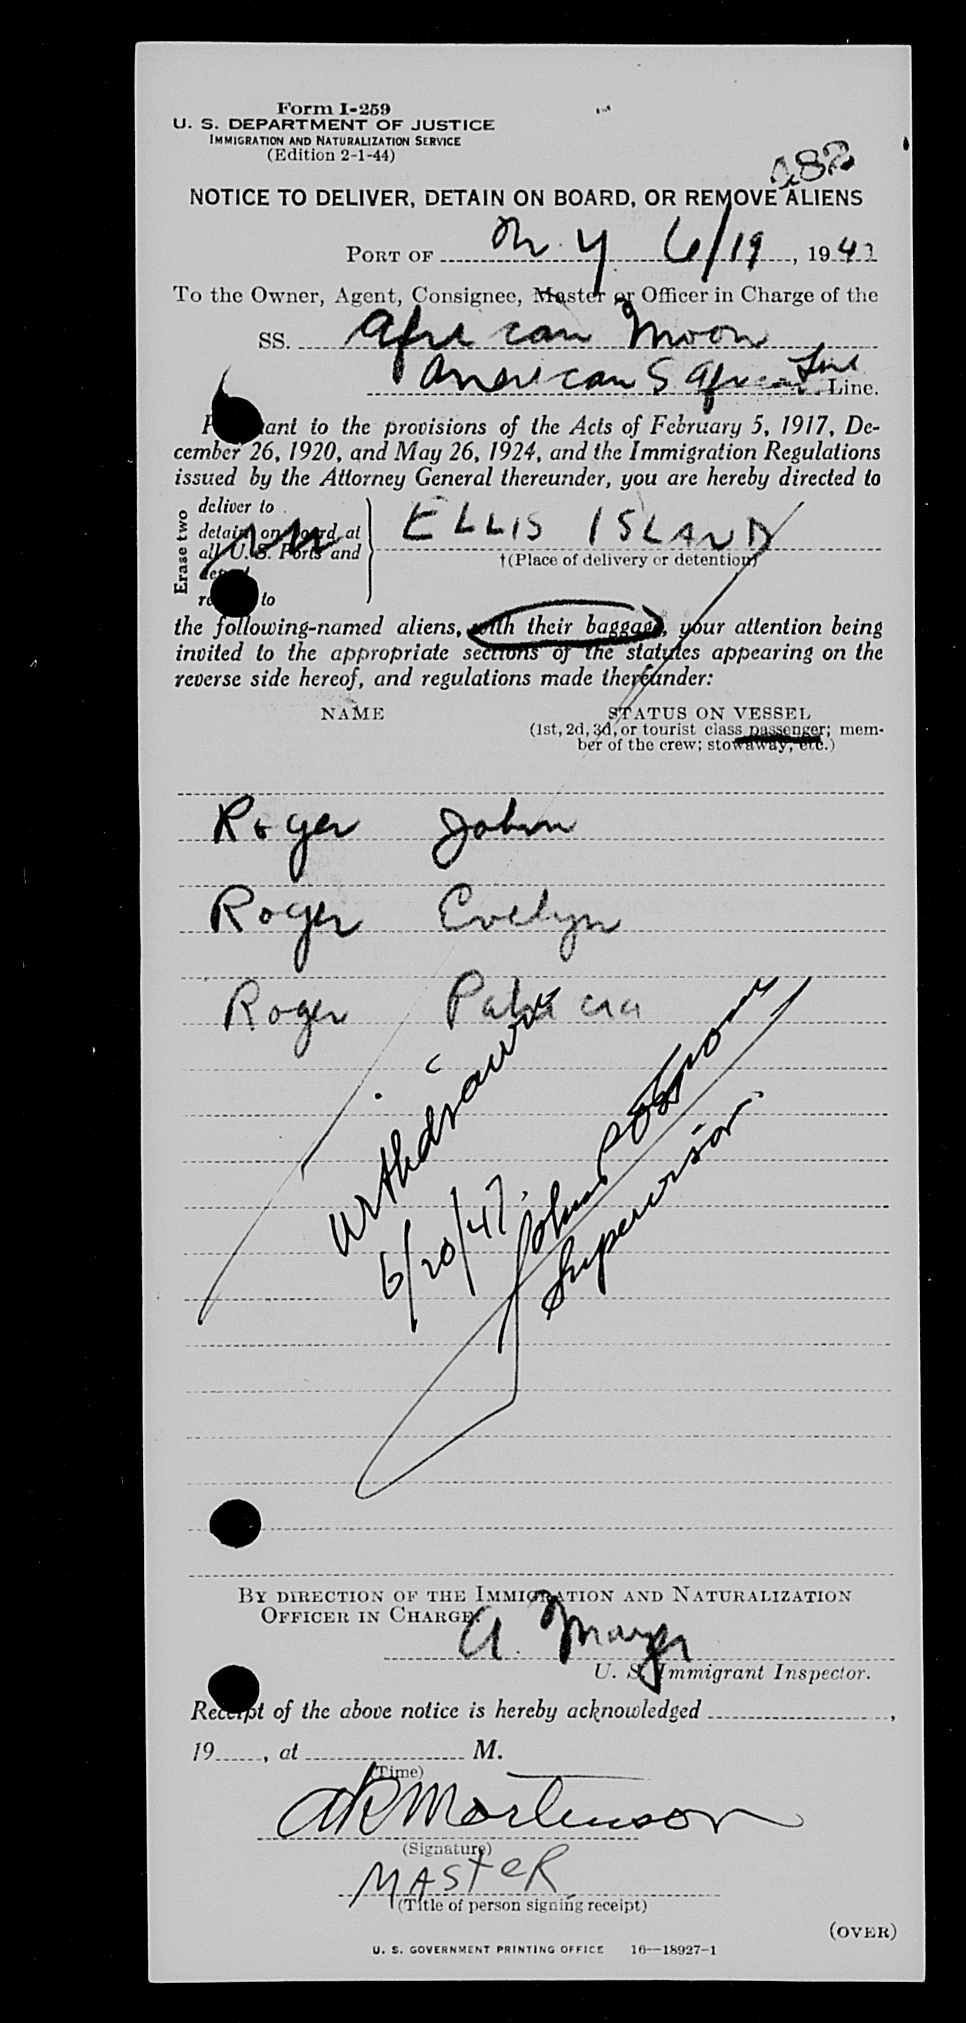 Form I-259
U. S. DEPARTMENT OF JUSTICE
IMMIGRATION AND NATURALIZATION SERVICE
(Edition 2-1-44)
282
NOTICE TO DELIVER, DETAIN ON BOARD, OR REMOVE ALIENS
PORT OF N. Y. 6/19, 1947
To the Owner, Agent, Consignee, Master or Officer in Charge of the
SS. African Moon
American S African Line Line.
Pursuant to the provisions of the Acts of February 5, 1917, De-
cember 26, 1920, and May 26, 1924, and the Immigration Regulations
issued by the Attorney General thereunder, you are hereby directed to
Erase two
deliver to
detain on board at
all U. S. Ports and
to
ELLIS ISLAND
†(Place of delivery or detention)
the following-named aliens, with their baggage, your attention being
invited to the appropriate sections of the statutes appearing on the
reverse side hereof, and regulations made thereunder:
NAME STATUS ON VESSEL
(1st, 2d, 3d, or tourist class passenger; mem-
ber of the crew; stowaway, etc.)
Roger John
Roger Evelyn
Roger Patricia
Withdrawn
6/20/47.
John
Supervisor
BY DIRECTION OF THE IMMIGRATION AND NATURALIZATION
OFFICER IN CHARGE:
A. Mayer
U. S. Immigrant Inspector.
Receipt of the above notice is hereby acknowledged ,
19 , at M.
(Time)
A R Mortenson
(Signature)
MASTER
(Title of person signing receipt)
(OVER)
U. S. GOVERNMENT PRINTING OFFICE 16—18927-1